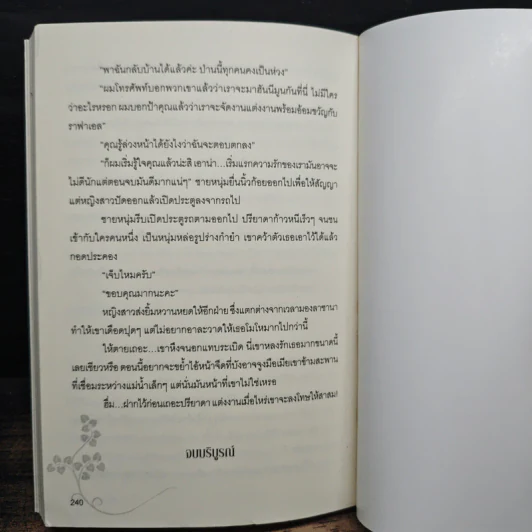 “พาฉันกลับบ้านได้แล้วค่ะ ป่านนี้ทุกคนคงเป็นห่วง”
“ผมโทรศัพท์บอกพวกเขาแล้วว่าเราจะมาฮันนีมูนกันที่นี่ ไม่มีใคร
ว่าอะไรหรอก ผมบอกป้าคุณแล้วว่าเราจะจัดงานแต่งงานพร้อมอ้อมขวัญกับ
ราฟาเอล”
“คุณรู้ล่วงหน้าได้ยังไงว่าฉันจะตอบตกลง”
“ก็ผมเริ่มรู้ใจคุณแล้วน่ะสิ เอาน่า...เริ่มแรกความรักของเรามันอาจจะ
ไม่ดีนักแต่ตอนจบมันดีมากแน่ๆ” ชายหนุ่มยื่นนิ้วก้อยออกไปเพื่อให้สัญญา
แต่หญิงสาวปัดออกแล้วเปิดประตูลงจากรถไป
ชายหนุ่มรีบเปิดประตูรถตามออกไป ปรียาดาก้าวหนีเร็วๆ จนชน
เข้ากับใครคนหนึ่ง เป็นหนุ่มหล่อรูปร่างกำยำ เขาคว้าตัวเธอเอาไว้ได้แล้ว
กอดประคอง
“เจ็บไหมครับ”
“ขอบคุณมากนะคะ”
หญิงสาวส่งยิ้มหวานหยดให้อีกฝ่าย ซึ่งแตกต่างจากเวลามองลาซานา
ทำให้เขาเดือดปุดๆ แต่ไม่อยากอาละวาดให้เธอโมโหมากไปกว่านี้
ให้ตายเถอะ...เขาหึงจนอกแทบระเบิด นี่เขาหลงรักเธอมากขนาดนี้
เลยเชียวหรือ ตอนนี้อยากจะขย้ำไอ้หน้าจืดที่บังอาจจูงมือเมียเขาข้ามสะพาน
ที่เชื่อมระหว่างแม่น้ำเล็กๆ แต่นั่นมันหน้าที่เขาไม่ใช่เหรอ
ฮึ่ม...ฝากไว้ก่อนเถอะปรียาดา แต่งงานเมื่อไหร่เขาจะลงโทษให้สาสม!
จบบริบูรณ์
240